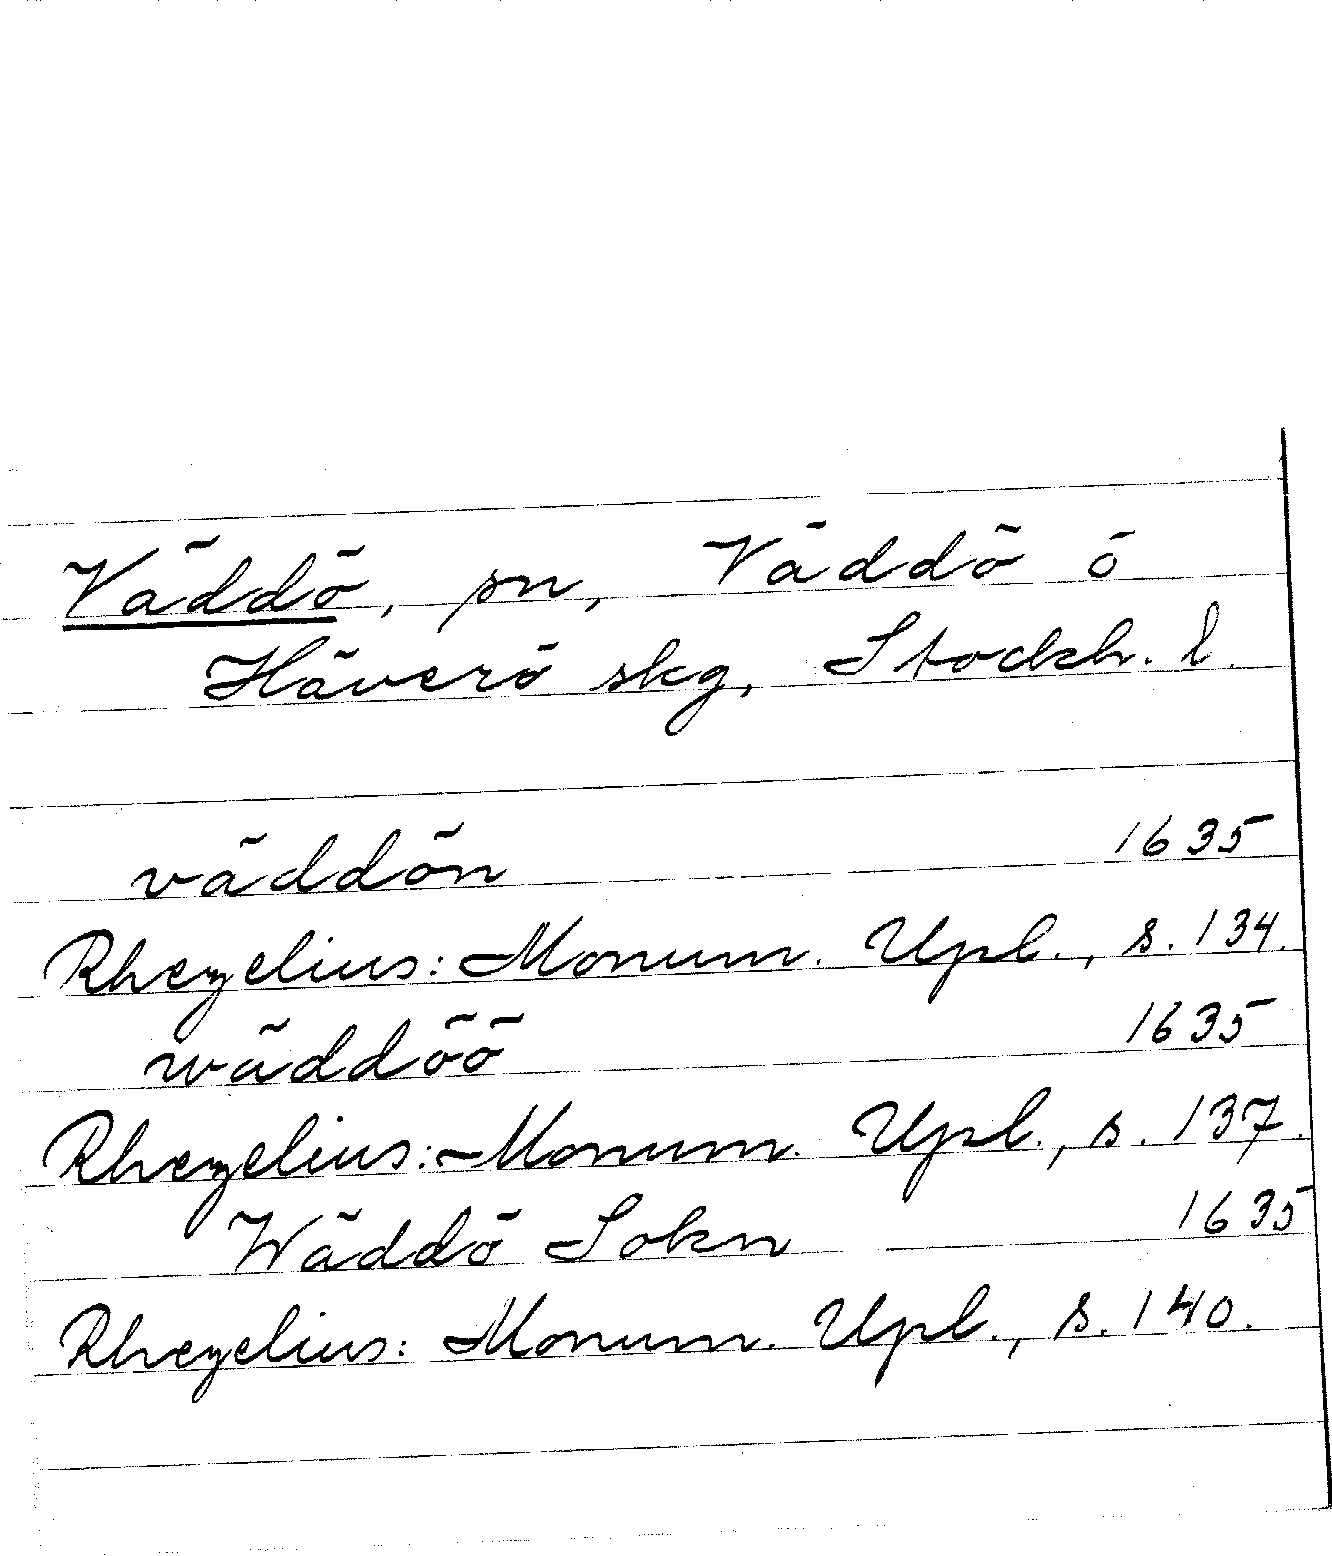 Väddö, sn, Väddö ö
Häverö skg, Stockh. l.
väddön 1635
Rhezelius: Monum. Upl., s. 134.
wäddöö 1635
Rhezelius: Monum. Upl., s. 137.
Wäddö Sokn 1635
Rhezelius: Monum. Upl., s. 140.